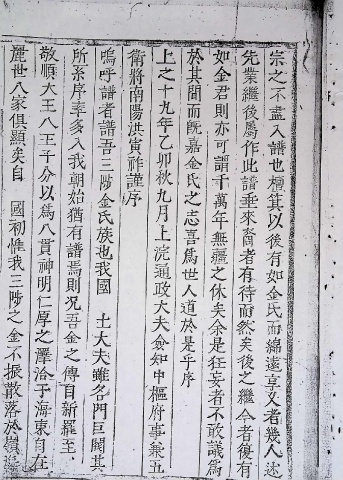 宗之不盡入譜也檀箕以後有如金氏而綿遠享乂者幾人述
先業繼後屬作此譜垂來裔者有待而然矣後之繼今者復有
如金君則亦可謂千萬年無疆之休矣余是狂妄者不敢議爲
於其間而旣嘉金氏之志喜爲世人道於是乎序
上之十九年乙卯秋九月上浣通政大夫僉知中樞府事兼五
衛將南陽洪寅祚謹序
嗚呼譜者譜吾三陟金氏族也我國 士大夫雖名門巨閥其
所系序率多入我朝始猶有譜焉則况吾金之傳自新羅至
敬順大王八王子分以爲八貫神明仁厚之澤洽于海東自在
麗世八家俱顯矣自 國初惟我三陟之金不振散落於嶺